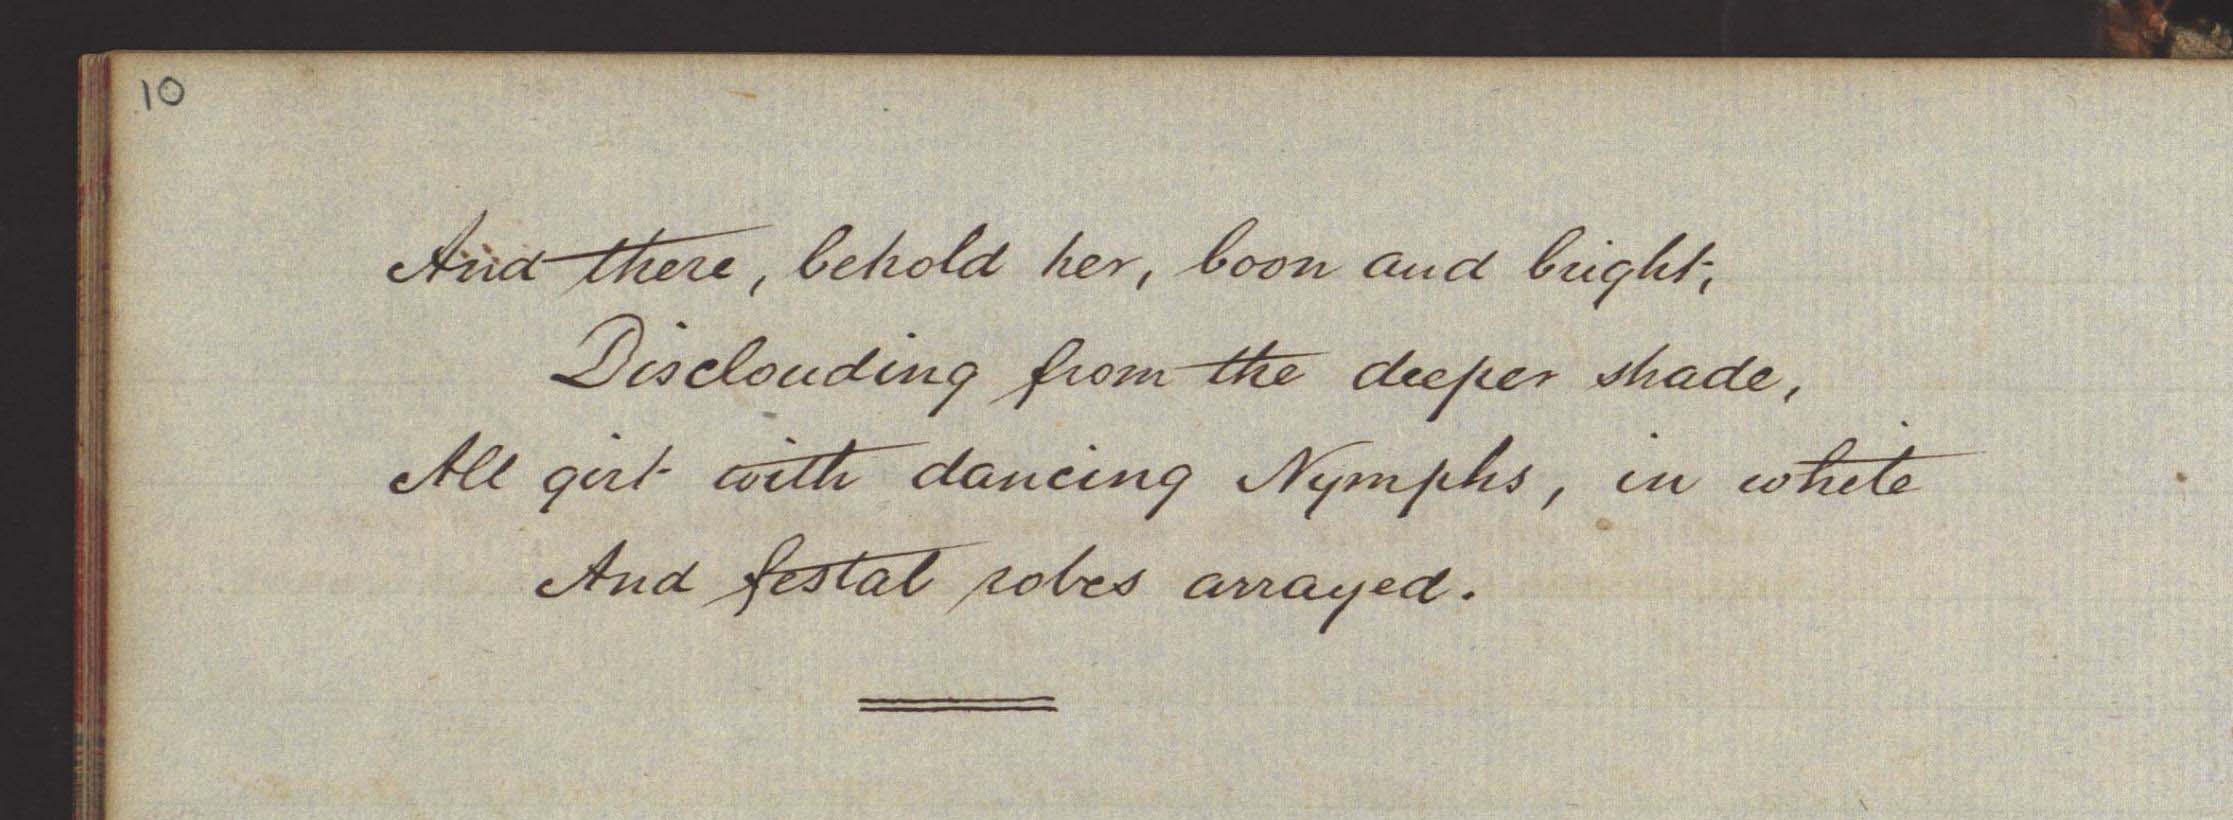 10
And there, behold her, boon and bright,
Disclouding from the deeper shade,
All girt with dancing Nymphs, in white
And festal robes arrayed.